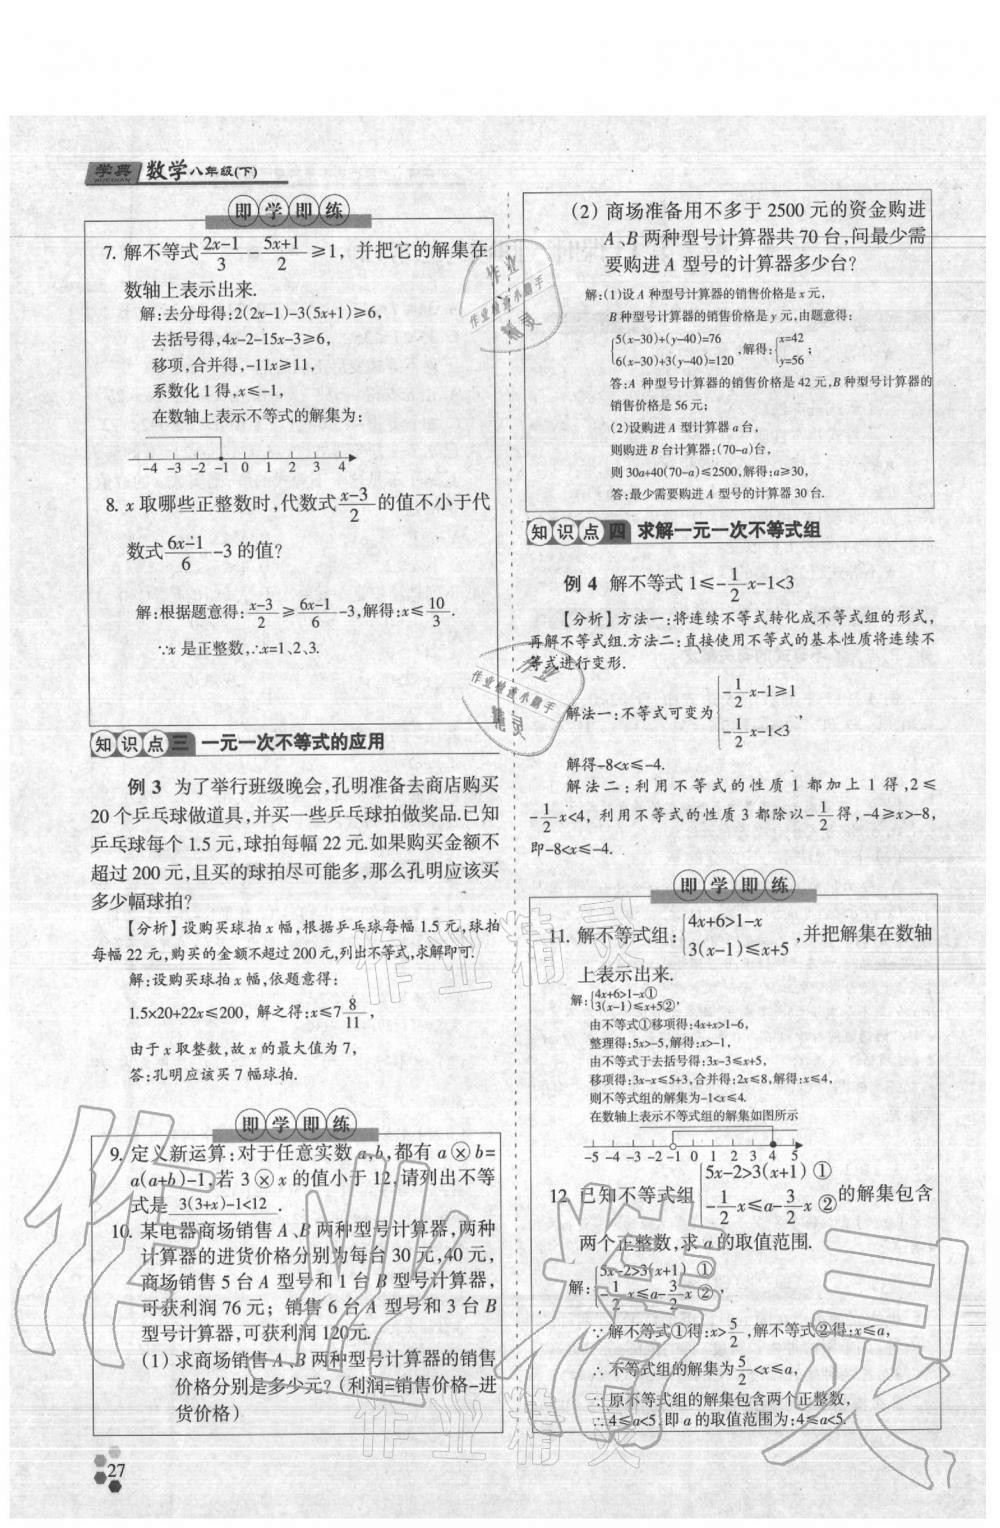 学典 数学八年级(下)
XUEDIAN
即学即练
7. 解不等式(2x-1)/3-(5x+1)/2≥1，并把它的解集在
数轴上表示出来.
解:去分母得:2(2x-1)-3(5x+1)≥6,
去括号得,4x-2-15x-3≥6,
移项,合并得,-11x≥11,
系数化1得,x≤-1,
在数轴上表示不等式的解集为:
-4 -3 -2 -1 0 1 2 3 4
8. x取哪些正整数时,代数式(x-3)/2的值不小于代
数式(6x-1)/6-3的值?
解:根据题意得:(x-3)/2≥(6x-1)/6-3,解得:x≤10/3.
∵x是正整数,∴x=1、2、3.
知识点三 一元一次不等式的应用
例3 为了举行班级晚会,孔明准备去商店购买
20个乒乓球做道具,并买一些乒乓球拍做奖品.已知
乒乓球每个1.5元,球拍每幅22元.如果购买金额不
超过200元,且买的球拍尽可能多,那么孔明应该买
多少幅球拍?
【分析】设购买球拍x幅,根据乒乓球每幅1.5元,球拍
每幅22元,购买的金额不超过200元,列出不等式,求解即可.
解:设购买球拍x幅,依题意得:
1.5×20+22x≤200, 解之得:x≤7 8/11,
由于x取整数,故x的最大值为7,
答:孔明应该买7幅球拍.
即学即练
9. 定义新运算:对于任意实数a,b,都有a⊗b=
a(a+b)-1,若3⊗x的值小于12,请列出不等
式是 3(3+x)-1<12 .
10. 某电器商场销售A、B两种型号计算器,两种
计算器的进货价格分别为每台30元,40元,
商场销售5台A型号和1台B型号计算器,
可获利润76元；销售6台A型号和3台B
型号计算器,可获利润120元.
(1) 求商场销售A、B两种型号计算器的销售
价格分别是多少元?(利润=销售价格-进
货价格)
27
(2) 商场准备用不多于2500元的资金购进
A、B两种型号计算器共70台,问最少需
要购进A型号的计算器多少台?
解:(1)设A种型号计算器的销售价格是x元,
B种型号计算器的销售价格是y元,由题意得:
{5(x-30)+(y-40)=76
6(x-30)+3(y-40)=120 ,解得:{x=42
y=56;
答:A种型号计算器的销售价格是42元,B种型号计算器的
销售价格是56元;
(2)设购进A型计算器a台,
则购进B台计算器:(70-a)台,
则30a+40(70-a)≤2500,解得:a≥30,
答:最少需要购进A型号的计算器30台.
知识点四 求解一元一次不等式组
例4 解不等式1≤-1/2x-1<3
【分析】方法一:将连续不等式转化成不等式组的形式,
再解不等式组.方法二:直接使用不等式的基本性质将连续不
等式进行变形.
解法一:不等式可变为{-1/2x-1≥1
-1/2x-1<3,
解得-8<x≤-4.
解法二:利用不等式的性质1都加上1得,2≤
-1/2x<4, 利用不等式的性质3都除以-1/2得,-4≥x>-8,
即-8<x≤-4.
即学即练
11. 解不等式组:{4x+6>1-x
3(x-1)≤x+5,并把解集在数轴
上表示出来.
解:{4x+6>1-x①
3(x-1)≤x+5②,
由不等式①移项得:4x+x>1-6,
整理得:5x>-5,解得:x>-1,
由不等式于去括号得:3x-3≤x+5,
移项得:3x-x≤5+3,合并得:2x≤8,解得:x≤4,
则不等式组的解集为-1<x≤4.
在数轴上表示不等式组的解集如图所示
-5 -4 -3 -2 -1 0 1 2 3 4 5
12. 已知不等式组{5x-2>3(x+1) ①
-1/2x≤a-3/2x ②的解集包含
两个正整数,求a的取值范围.
解:{5x-2>3(x+1) ①
-1/2x≤a-3/2x ②,
∵解不等式①得:x>5/2,解不等式②得:x≤a,
∴不等式组的解集为5/2<x≤a,
∵原不等式组的解集包含两个正整数,
∴4≤a<5.即a的取值范围为:4≤a<5.
作业精灵
作业检查小助手
作业精灵
作业检查小助手
作业精灵
作业精灵
作业精灵